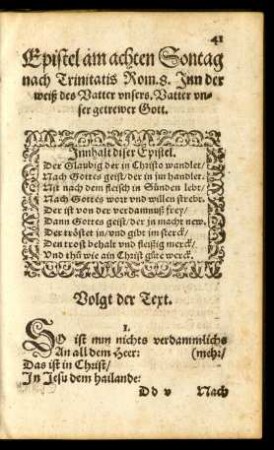 41
Epistel am achten Sontag
nach Trinitatis Rom. 8. Jnn der
weiß des Vatter vnsers. Vatter vn-
ser getrewer Gott.
Jnnhalt diser Epistel.
Der Glaubig der in Christo wandlet/
Nach Gottes geist/der in jm handlet.
Nit nach dem fleisch in Sünden lebt/
Nach Gottes wort vnd willen strebt.
Der ist von der verdamnuß frey/
Dann Gottes geist/der jn macht new.
Der tröstet jn/vnd gibt im sterck/
Den trost behalt vnd fleissig merck/
Vnd thů wie ain Christ gůte werck.
Volgt der Text.
1.
SO ist nun nichts verdammlichs
An all dem Heer: (mehr/
Das ist in Christ/
Jn Jesu dem hailande:
D d v Nach